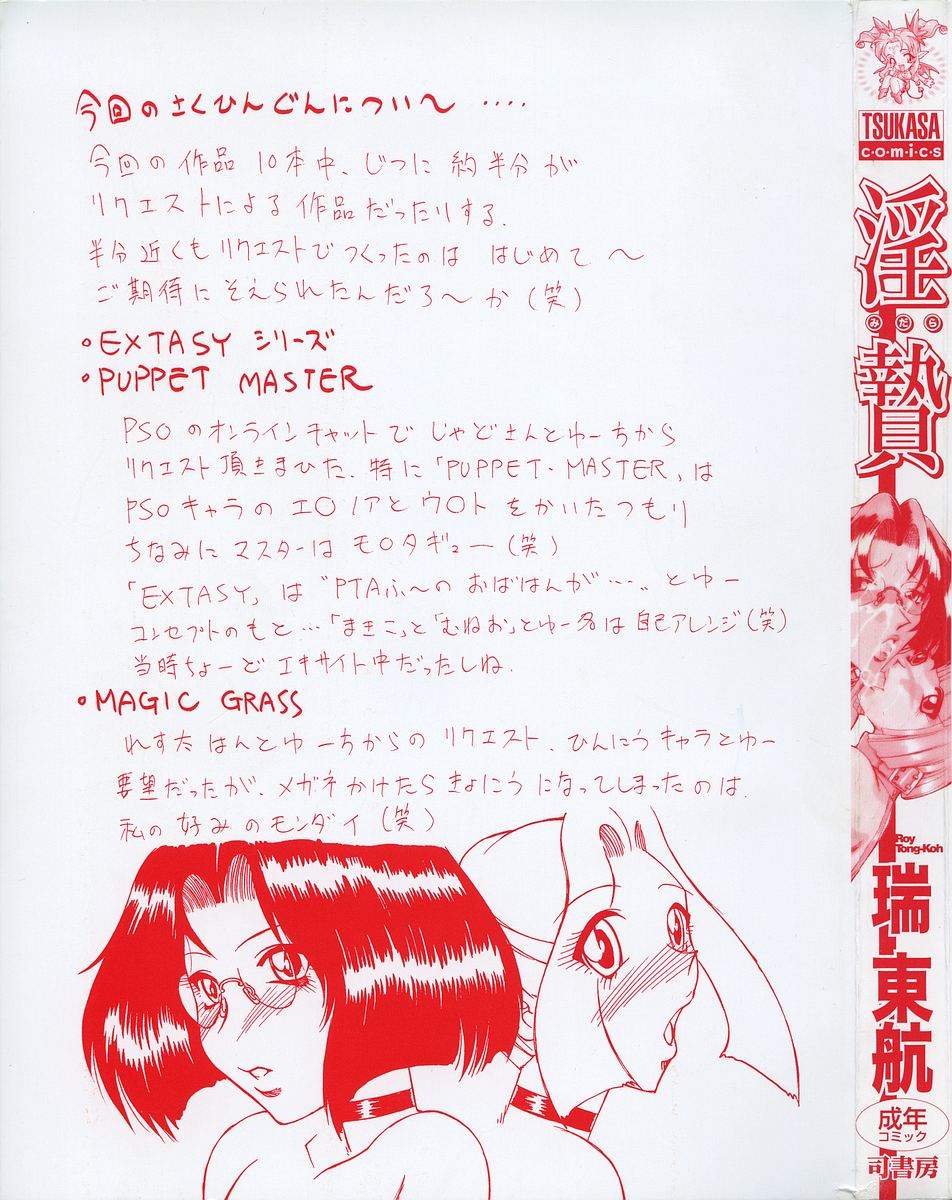 今回のさくひんぐんについ〜 ‥‥
今回の作品10本中、じつに約半分が
リクエストによる作品だったりする.
半分近くもリクエストでつくったのは はじめて〜
ご期待にそえられたんだろ〜か (笑)
・EXTASY シリーズ
・PUPPET MASTER
PSOのオンラインチャットで じゃどさんとゆーちから
リクエスト頂きまひた. 特に「PUPPET・MASTER」は
PSOキャラの エ〇ノアと ウ〇ト をかいたつもり
ちなみに マスターは モ〇タギュー (笑)
「EXTASY」は “PTAふ〜の おばはんが…„ とゆー
コンセプトのもと…「まきこ」と「むねお」とゆー名は自己アレンジ(笑)
当時ちょーど エキサイト中だったしね.
・MAGIC GRASS
れすたはんとゆーちからの リクエスト、ひんにうキャラとゆー
要望だったが、メガネかけたら きょにうになってしまったのは.
私の好みのモンダイ (笑)
TSUKASA
c・o・m・i・c・s
淫贄
みだら
Roy
Tong-Koh
瑞東航
成年
コミック
司書房